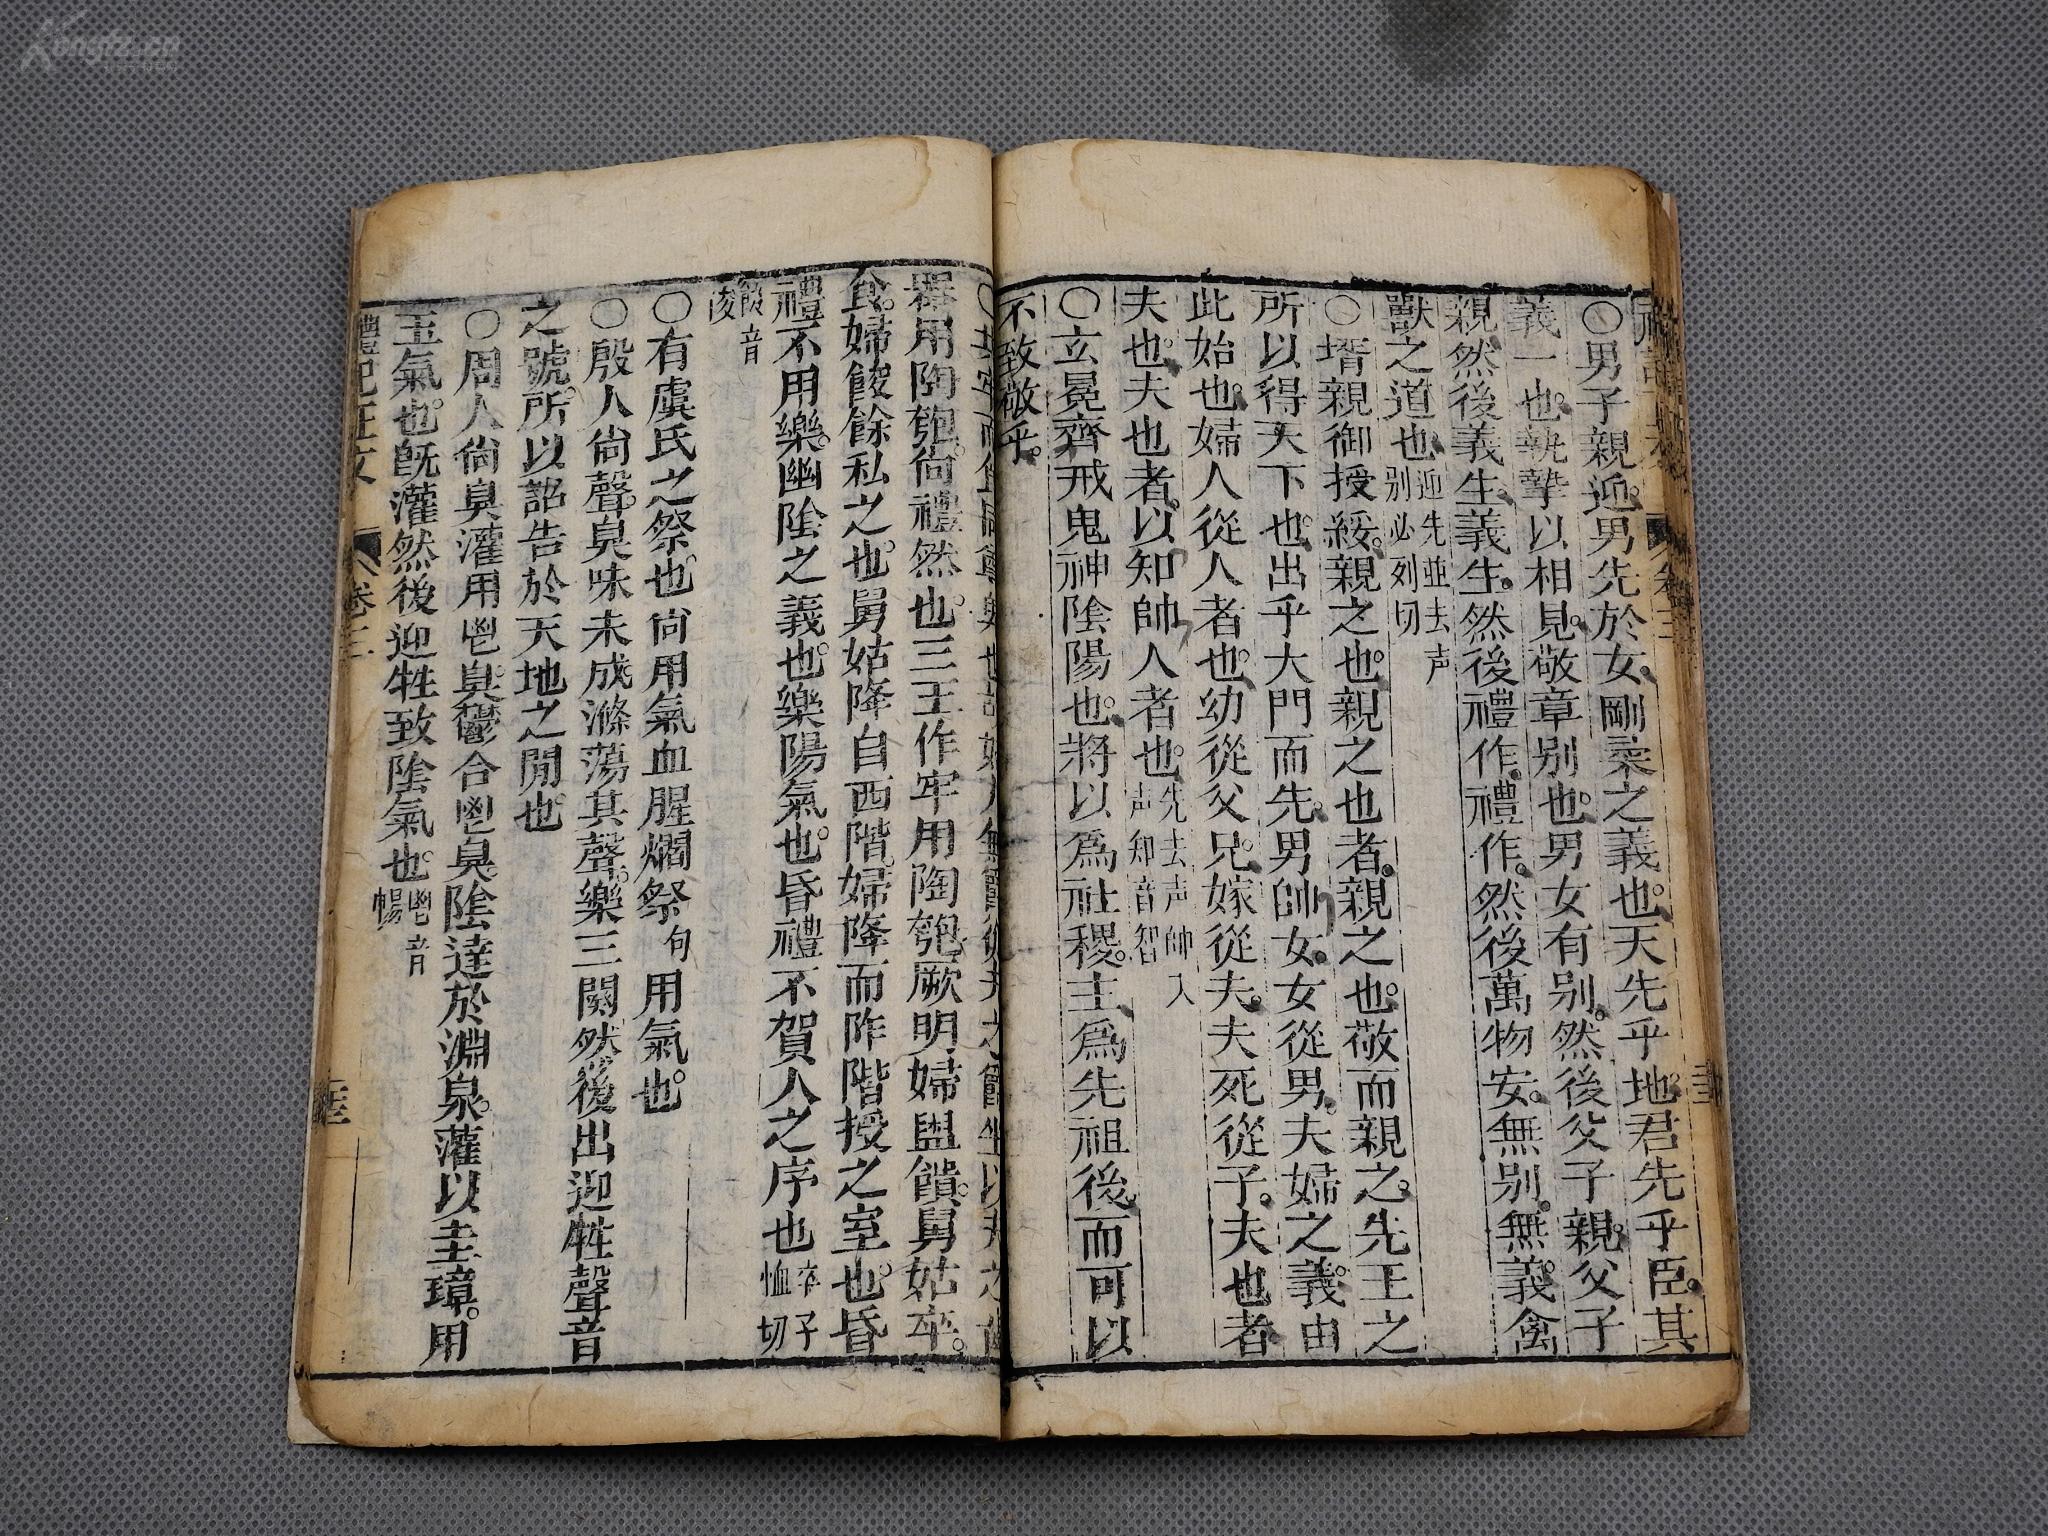 ○男子親迎男先於女剛柔之義也天先乎地君先乎臣其
義一也執摯以相見敬章别也男女有别然後父子親父子
親然後義生義生然後禮作禮作然後萬物安無别無義禽
獸之道也迎先並去声别必列切
○壻親御授綏親之也親之也者親之也敬而親之先王之
所以得天下也出乎大門而先男帥女女從男夫婦之義由
此始也婦人從人者也幼從父兄嫁從夫夫死從子夫也者
夫也夫也者以知帥人者也先去声帥入声知音智
○玄冕齊戒鬼神陰陽也將以爲社稷主爲先祖後而可以
不致敬乎
器用陶匏尙禮然也三王作牢用陶匏厥明婦盥饋舅姑卒
食婦餕餘私之也舅姑降自西階婦降而阼階授之室也昏
禮不用樂幽陰之義也樂陽氣也昏禮不賀人之序也卒子恤切
餕音俊
○有虞氏之祭也尙用氣血腥爓祭句用氣也
○殷人尙聲臭味未成滌蕩其聲樂三闋然後出迎牲聲音
之號所以詔告於天地之閒也
○周人尙臭灌用鬯臭鬱合鬯臭陰達於淵泉灌以圭璋用
玉氣也旣灌然後迎牲致陰氣也鬯音暢
禮記正文
卷三